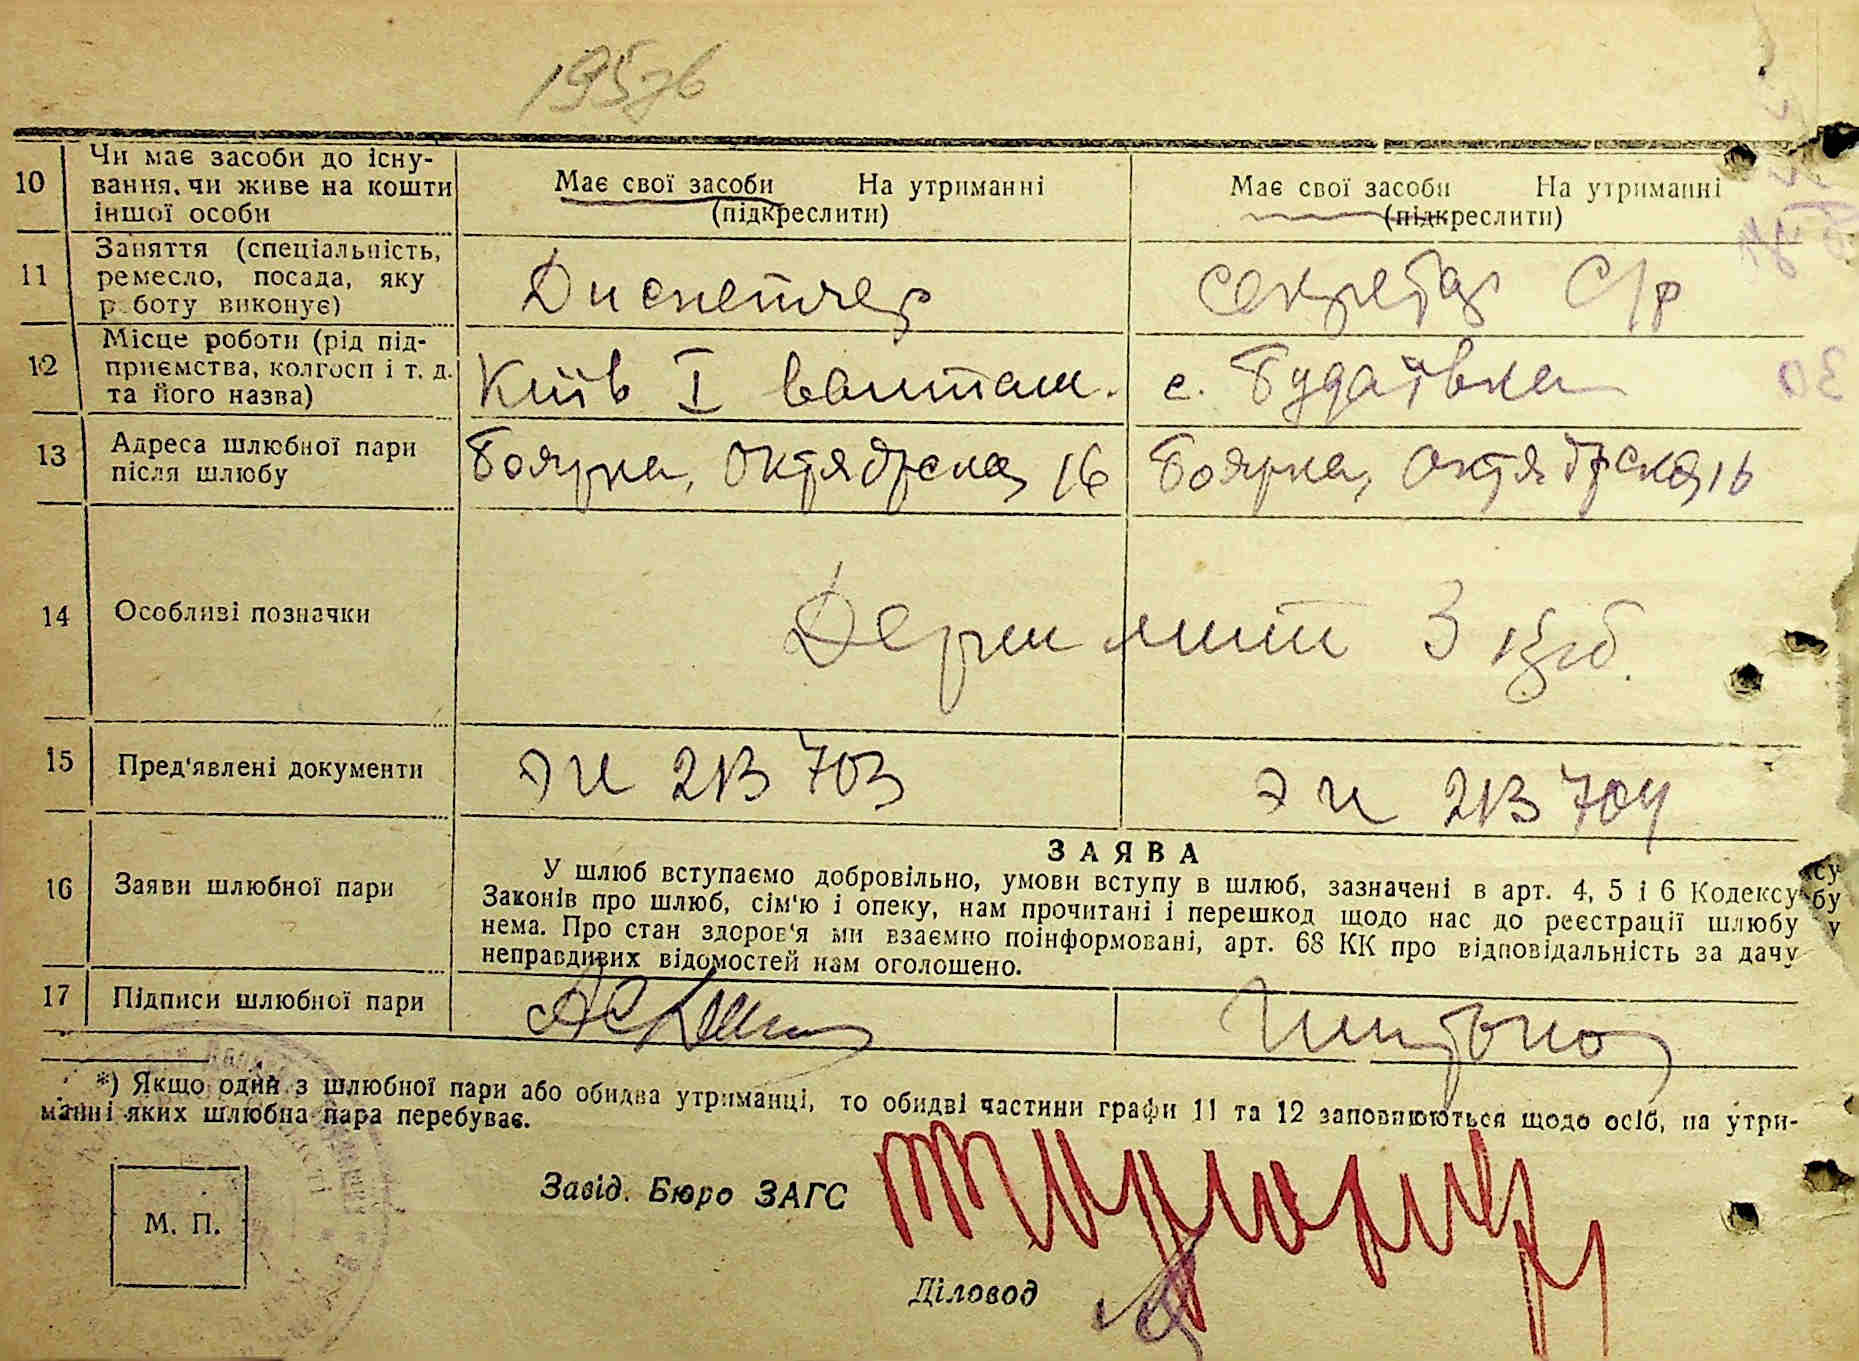 10
Чи має засоби до існу-
вання, чи живе на кошти
іншої особи
Має свої засоби На утриманні
(підкреслити)
Має свої засоби На утриманні
(підкреслити)
11
Заняття (спеціальність,
ремесло, посада, яку
роботу виконує)
Диспетчер
секретар С/р
12
Місце роботи (рід під-
приємства, колгосп і т. д.
та його назва)
Київ I вантаж.
с. Будаївка
13
Адреса шлюбної пари
після шлюбу
Боярка, Октябрська, 16
Боярка, Октябрська, 16
14
Особливі позначки
Держ мито 3 крб.
15
Пред'явлені документи
213 703
213 704
16
Заяви шлюбної пари
ЗАЯВА
У шлюб вступаємо добровільно, умови вступу в шлюб, зазначені в арт. 4, 5 і 6 Кодексу
Законів про шлюб, сім'ю і опеку, нам прочитані і перешкод щодо нас до реєстрації шлюбу
нема. Про стан здоров'я ми взаємно поінформовані, арт. 68 КК про відповідальність за дачу
неправдивих відомостей нам оголошено.
17
Підписи шлюбної пари
*) Якщо один з шлюбної пари або обидва утриманці, то обидві частини графи 11 та 12 заповнюються щодо осіб, на утри-
манні яких шлюбна пара перебуває.
Завід. Бюро ЗАГС
М. П.
Діловод